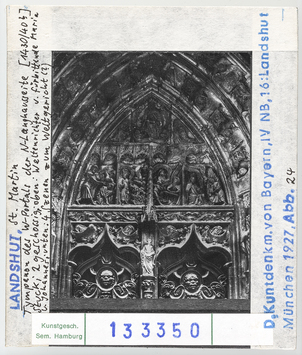 LANDSHUT St. Martin
Tympanon des W-Portals der N-Langhausseite [1430/40 h]
Stuck, 2 geschossig, oben: Weltenrichter u. fürbittende Maria
u. Johannes, unten: 4 Szenen zum Weltgericht (?)
D. Kunstdenkm. von Bayern, IV NB, 16: Landshut
München 1927, Abb. 24
Kunstgesch.
Sem. Hamburg
133350